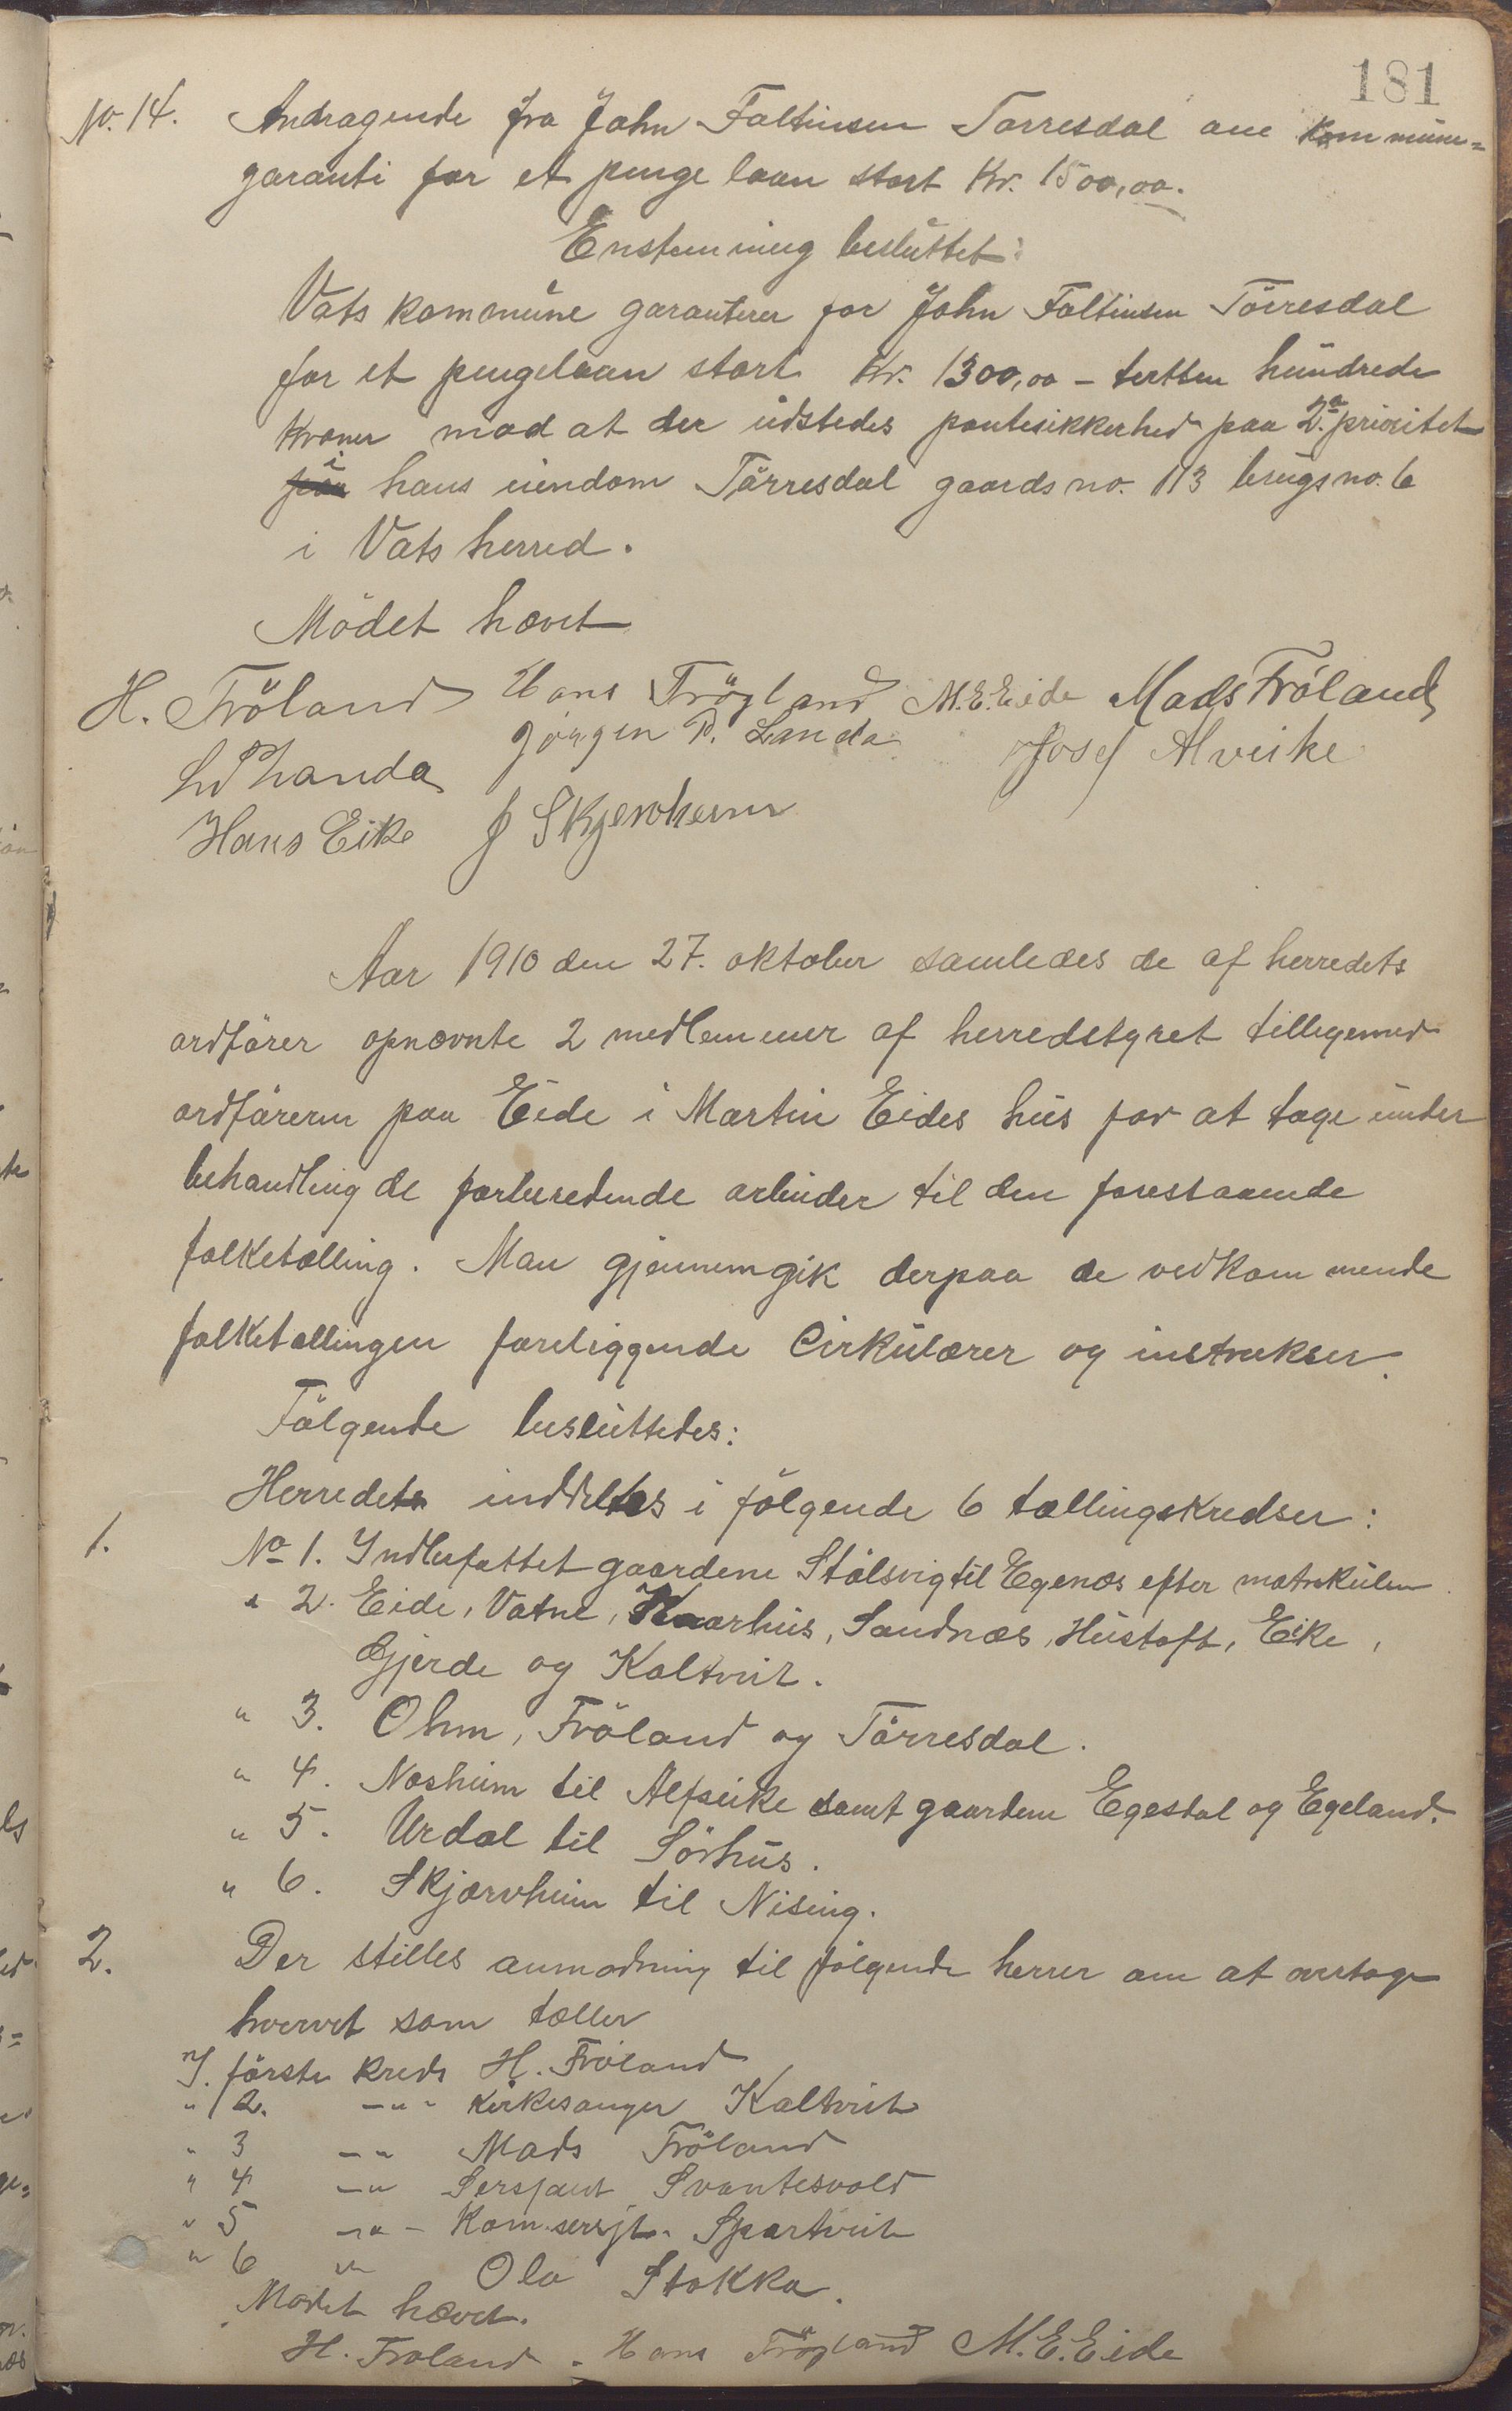 181
No. 14. Andragende fra John Faltinsen Tørresdal om kommune=
garanti for et penge laan stort Kr. 1500,00.
Enstemmig besluttet:
Vats kommune garanterer for John Faltinsen Törresdal
for et pengelaan stort Kr. 1300,00 - tretten hundrede
Kroner mod at der udstedes pantesikkerhed paa 2.den prioritet
i hans eiendom Törresdal gaards no. 113 brugs no. 6
i Vats herred.
Mödet hævet
H. Fröland Hans Frögland M.E. Eide Mads Fröland
Jörgen P. Landa Josef Alveike
Landa
Hans Eike J Skjervheim
Aar 1910 den 27. oktober samledes de af herredets
ordförer opnævnte 2 medlemmer af herredstyret tilligemed
ordföreren paa Eide i Martin Eides hus for at tage under
behandling de forberedende arbeider til den forestaaende
folketælling. Man gjennemgik derpaa de vedkommende
folketællingen foreliggende Cirkulærer og instrukser.
Fölgende besluttedes:
Herredet inddeltes i fölgende 6 tællingskredser:
1. No 1. Indbefattet gaardene Stölsvig til Egenæs efter matrikulen.
" 2. Eide, Vatne, Kaarhus, Sandnæs, Hustoft, Eike,
Gjerde og Kaltveit.
" 3. Ohm, Fröland og Törresdal.
" 4. Næsheim til Alfseike samt gaardene Egesdal og Egeland.
" 5. Urdal til Sörhus.
" 6. Skjærvheim til Nising.
2. Der stilles anmodning til fölgende herrer om at overtage
hvervet som tæller
I. förste kreds H. Fröland
" 2. -"- Kirkesanger Kaltveit
" 3 -"- Mads Fröland
" 4 -"- Sersjant Svantesvold
" 5 -"- Kom.sersjt. Spartveit
" 6 " Ola Stokka.
Mødet hævet.
H. Fröland. Hans Frögland M.E. Eide